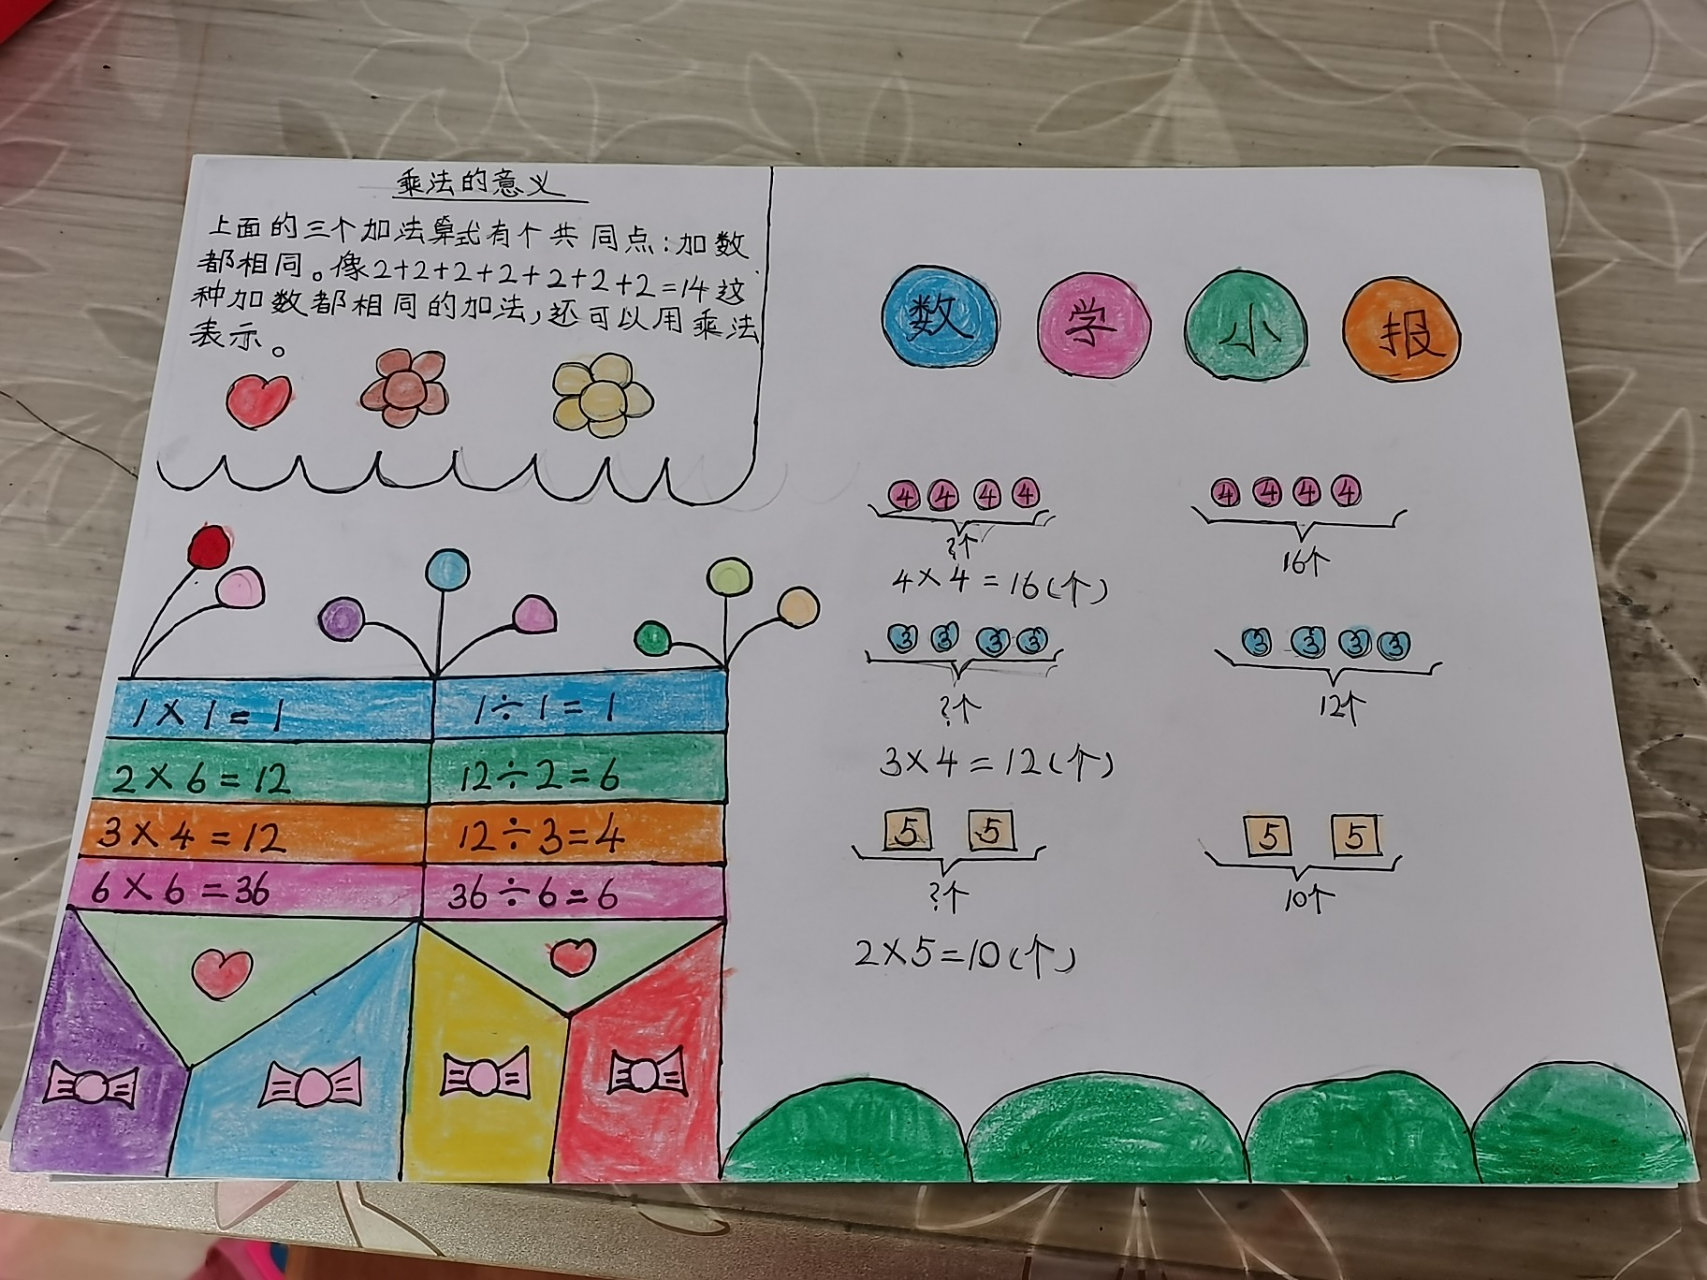 乘法的意义
上面的三个加法算式有个共同点:加数
都相同。像2+2+2+2+2+2+2=14这
种加数都相同的加法,还可以用乘法
表示。
数 学 小 报
4 4 4 4
?个
4×4=16(个)
4 4 4 4
16个
3 3 3 3
?个
3×4=12(个)
3 3 3 3
12个
5 5
?个
2×5=10(个)
5 5
10个
1×1=1 1÷1=1
2×6=12 12÷2=6
3×4=12 12÷3=4
6×6=36 36÷6=6